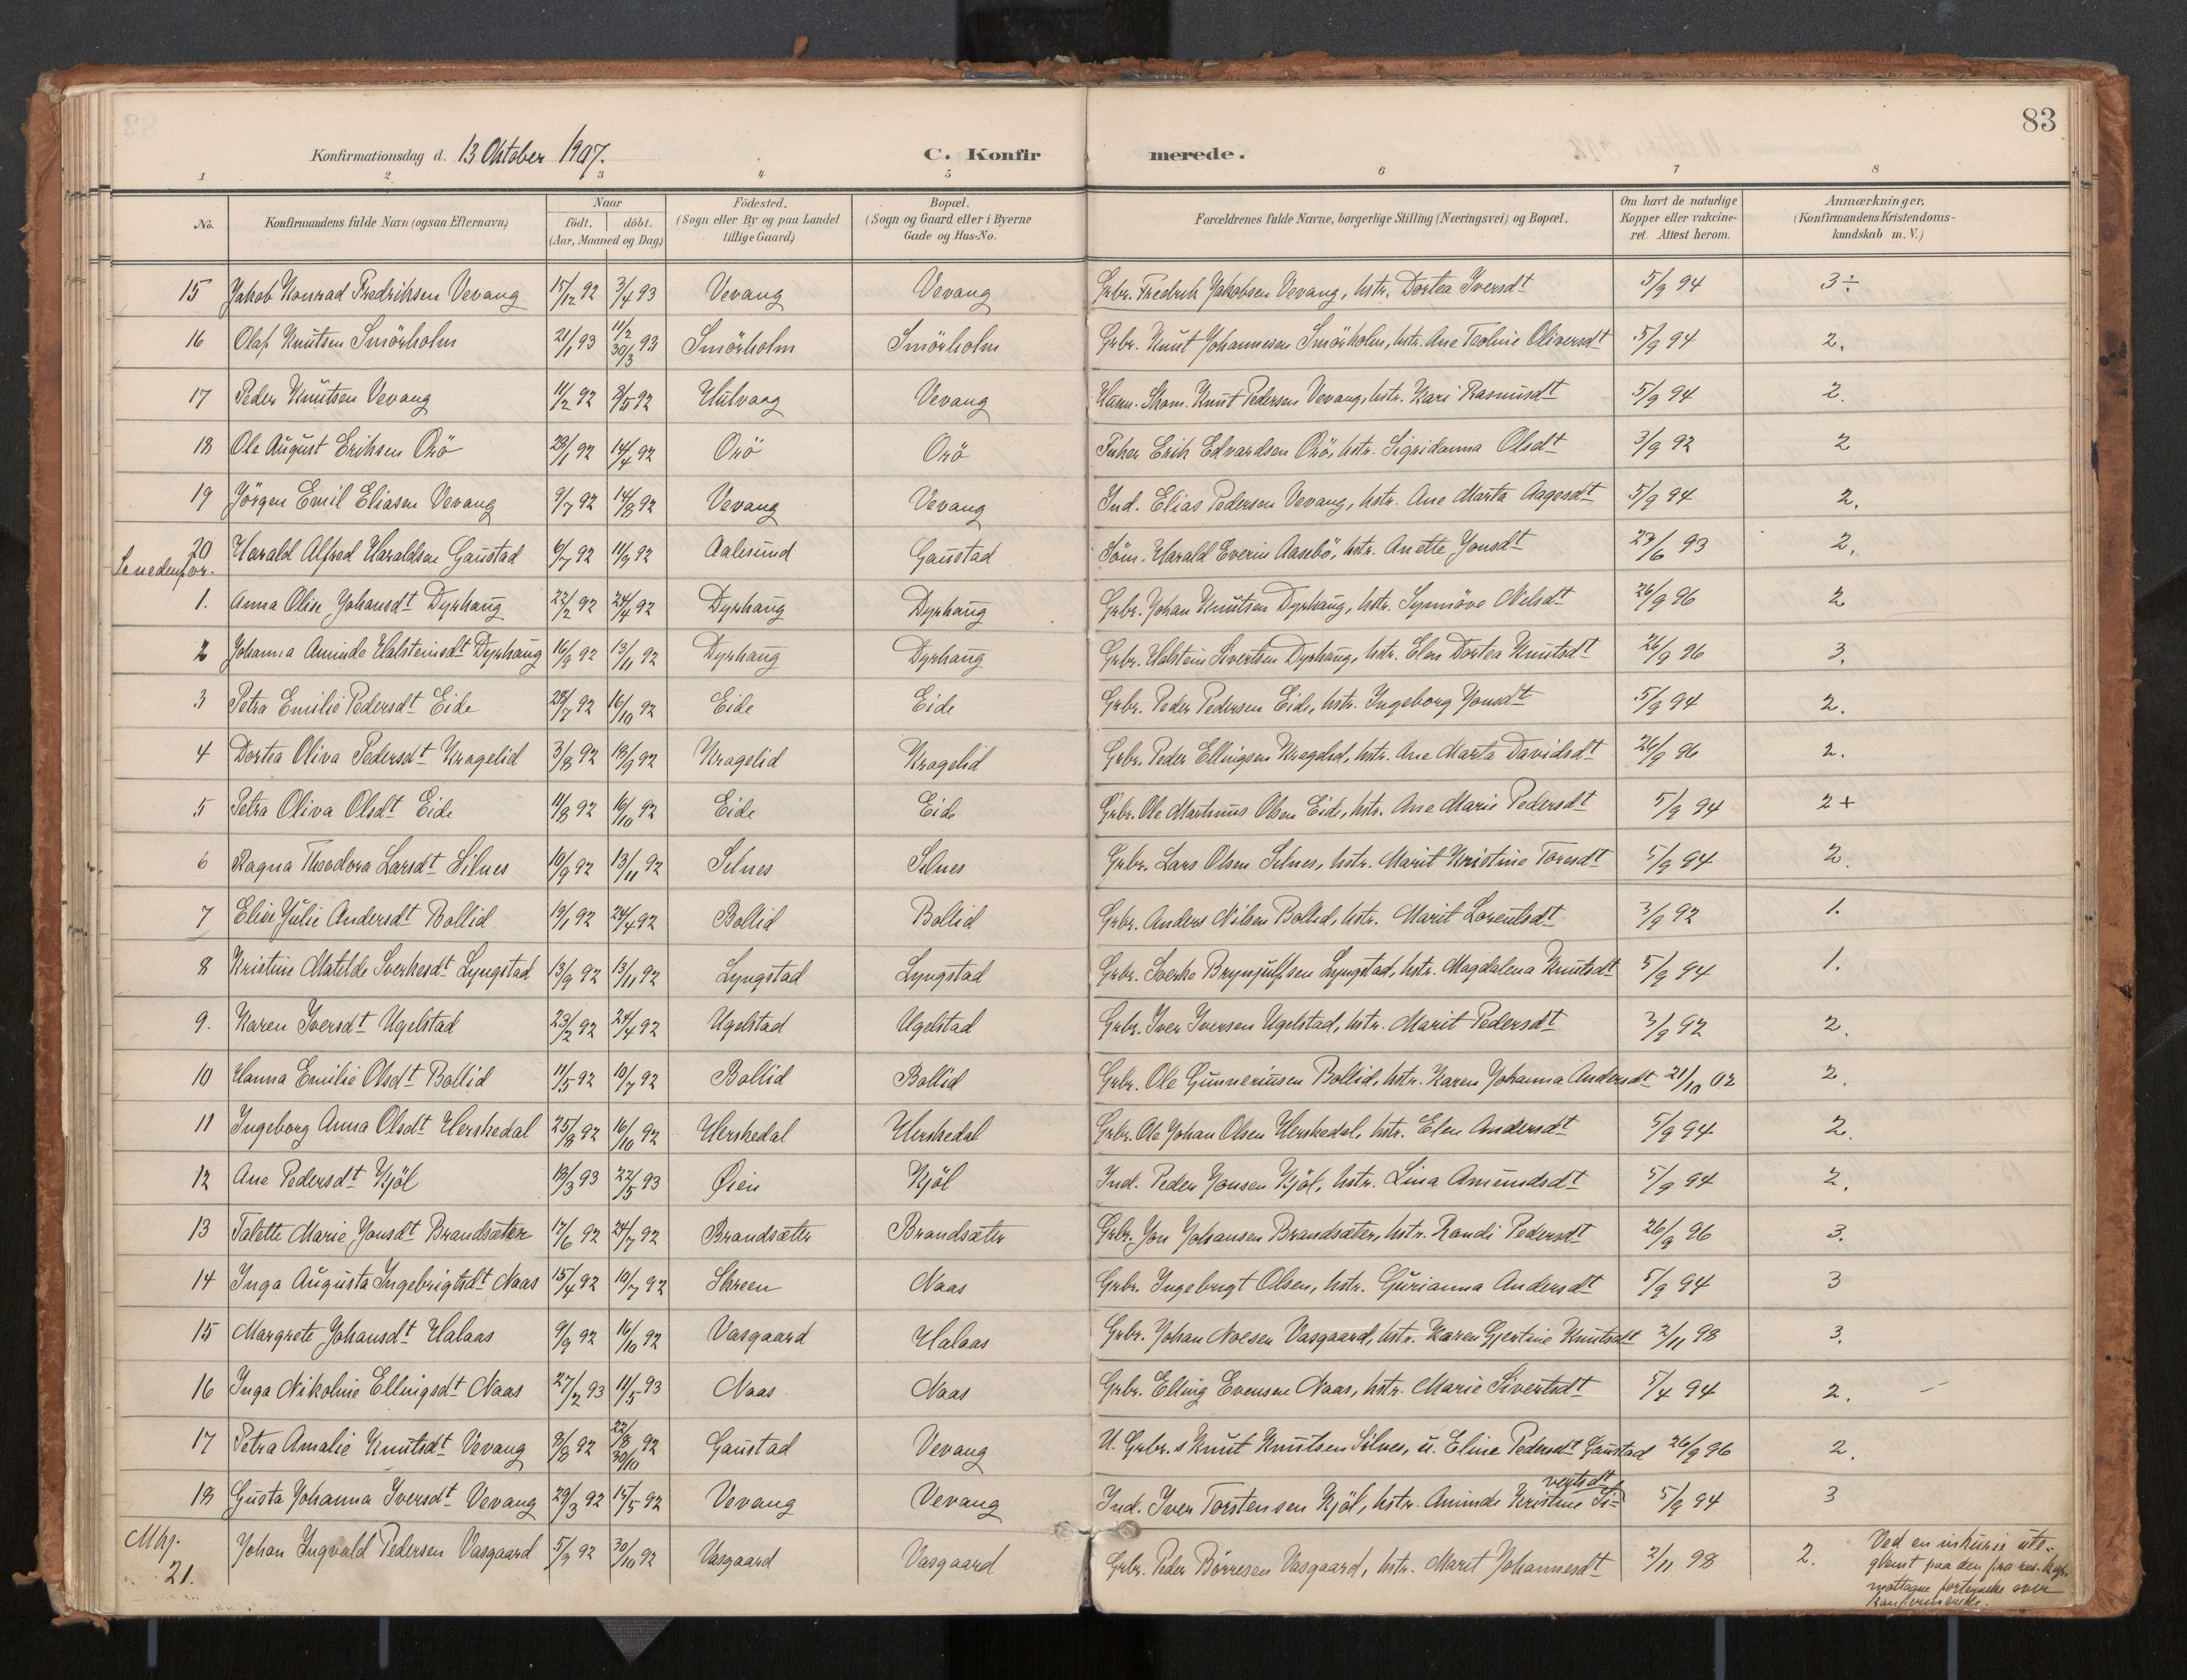 83
Konfirmationsdag d. 13 Oktober 1907.
C. Konfirmerede.
1 2 3 4 5 6 7 8
No. | Konfirmandens fulde Navn (ogsaa Efternavn) | Naar født. døbt. (Aar, Maaned og Dag) | Fødested. (Sogn eller By og paa Landet tillige Gaard) | Bopæl. (Sogn og Gaard eller i Byerne Gade og Hus-No. | Forældrenes fulde Navne, borgerlige Stilling (Næringsvei) og Bopæl. | Om havt de naturlige Kopper eller vakcineret. Attest herom. | Anmærkninger. (Konfirmandens Kristendomskundskab m. V.)
15 Jakob Konrad Fredriksen Vevang 15/12 92 3/4 93 Vevang Vevang Grbr. Fredrik Jakobsen Vevang, hstr. Dortea Iversdt 5/9 94 3÷
16 Olaf Knutsen Smörholm 21/1 93 11/2 30/3 93 Smörholm Smörholm Grbr. Knut Johannesen Smörholm, hstr. Ane Oliversdt 5/9 94 2.
17 Peder Knutsen Vevang 11/2 92 8/5 92 Hulvaag Vevang Husm. Skom. Knut Pedersen Vevang, hstr. Kari Rasmusdt 5/9 94 2.
18 Ole August Eriksen Orö 23/1 92 14/4 92 Orö Orö Fisker Erik Edvardsen Orö, hstr. Sigridanna Olsdt 3/9 92 2
19 Jörgen Emil Eliasen Vevang 9/7 92 14/8 92 Vevang Vevang Ind. Elias Pedersen Vevang, hstr. Ane Marta Aagesdt 5/9 94 2.
20 Harald Alfred Haraldsen Gaustad 6/7 92 11/9 92 Aalesund Gaustad Söm. Harald Everin Aasebö, hstr. Anette Jonsdt 23/6 93 2.
Se nedenfor.
1. Anna Olise Johansdt Dyrhaug 22/2 92 24/4 92 Dyrhaug Dyrhaug Grbr. Johan Knutsen Dyrhaug, hstr. Synnöve Nelsdt 26/9 96 2
2 Johanna Aminde Halsteinsdt Dyrhaug 16/9 92 13/11 92 Dyrhaug Dyrhaug Grbr. Halstein Sivertsen Dyrhaug, hstr. Elen Dortea Knutsdt 26/9 96 3.
3 Petra Emilie Pedersdt Eide 28/7 92 16/10 92 Eide Eide Grbr. Peder Pedersen Eide, hstr. Ingeborg Jonsdt 5/9 94 2.
4 Dortea Oliva Pedersdt Kragelid 3/8 92 18/9 92 Kragelid Kragelid Grbr. Peder Ellingsen Kragelid, hstr. Ane Marta Davidsdt 26/9 96 2.
5 Petra Oliva Olsdt Eide 11/8 92 16/10 92 Eide Eide Grbr. Ole Martinus Olsen Eide, hstr. Ane Marie Pedersdt 5/9 94 2+
6 Ragna Theodora Larsdt Silnes 10/9 92 13/11 92 Silnes Silnes Grbr. Lars Olsen Silnes, hstr. Marit Kristine Toresdt 5/9 94 2.
7 Elise Julie Andersdt Bollid 19/1 92 24/4 92 Bollid Bollid Grbr. Anders Nilsen Bollid, hstr. Marit Lorentsdt 3/9 92 1.
8 Kristine Matilde Sverkesdt Lyngstad 13/9 92 13/11 92 Lyngstad Lyngstad Grbr. Sverke Brynjulfsen Lyngstad, hstr. Magdalena Knutsdt 5/9 94 1.
9. Karen Iversdt Ugelstad 23/2 92 24/4 92 Ugelstad Ugelstad Grbr. Iver Iversen Ugelstad, hstr. Marit Pedersdt 3/9 92 2.
10 Hanna Emilie Olsdt Bollid 11/5 92 10/7 92 Bollid Bollid Grbr. Ole Gunneriusen Bollid, hstr. Karen Johanna Andersdt 21/10 02 2.
11 Ingeborg Anna Olsdt Herskedal 25/8 92 16/10 92 Herskedal Herskedal Grbr. Ole Johan Olsen Herskedal, hstr. Elen Andersdt 5/9 94 2.
12 Ane Pedersdt Kjöl 18/3 93 22/5 93 Øien Kjöl Ind. Peder Jonsen Kjöl, hstr. Lina Amundsdt 5/9 94 2.
13 Talette Marie Jonsdt Brandsæter 17/6 92 24/7 92 Brandsætr Brandsætr Grbr. Jon Johansen Brandsæter, hstr. Randi Pedersdt 26/9 96 3.
14 Inga Augusta Ingebrigtsdt Naas 15/4 92 10/7 92 Skreen Naas Grbr. Ingebrigt Olsen, hstr. Gurianna Andersdt 5/9 94 3
15 Margrete Johansdt Halaas 9/9 92 16/10 92 Vasgaard Halaas Grbr. Johan Noesen Vasgaard, hstr. Karen Gjertine Knutsdt 2/11 98 3.
16 Inga Nikoline Ellingsdt Naas 27/2 93 11/5 93 Naas Naas Grbr. Elling Evensen Naas, hstr. Marie Sivertsdt 5/4 94 2.
17 Petra Amalie Knutsdt Vevang 3/8 92 22/8 30/10 92 Gaustad Vevang U. Grbr.s Knut Knutsen Silnes, u. Eline Pedersdt Gaustad 26/9 96 2.
18 Gusta Johanna Iversdt Vevang 29/3 92 15/5 92 Vevang Vevang Ind. Iver Torstensen Kjöl, hstr. Aminde Kristine Sivertsdt 5/9 94 3
21. Johan Ingvald Pedersen Vasgaard 5/9 92 30/10 92 Vasgaard Vasgaard Grbr. Peder Börresen Vasgaard, hstr. Marit Johannesdt 2/11 98 2.
Ved en inkurie uteglemt paa den fra res. kap. mottagne fortegnelse over konfirmerede.